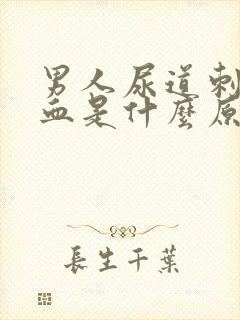 男人尿道刺
血是什麼原
長生千葉